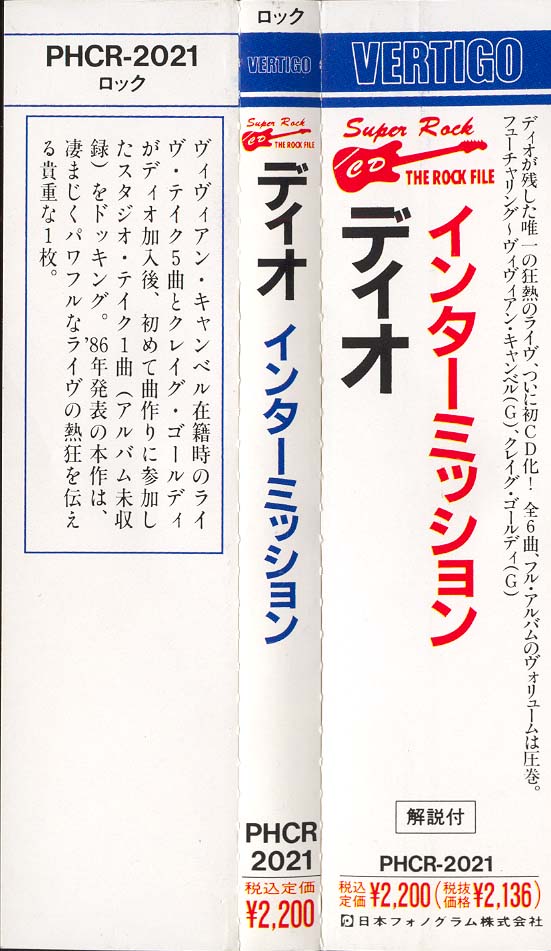 PHCR-2021
ロック
ヴィヴィアン・キャンベル在籍時のライ
ヴ・テイク5曲とクレイグ・ゴールディ
がディオ加入後、初めて曲作りに参加し
たスタジオ・テイク1曲(アルバム未収
録)をドッキング。'86年発表の本作は、
凄まじくパワフルなライヴの熱狂を伝え
る貴重な1枚。
ロック
VERTIGO
Super Rock
CD
THE ROCK FILE
ディオ インターミッション
PHCR
2021
税込定価
¥2,200
VERTIGO
Super Rock
CD
THE ROCK FILE
ディオが残した唯一の狂熱のライヴ、ついに初CD化! 全6曲、フル・アルバムのヴォリュームは圧巻。
フューチャリング～ヴィヴィアン・キャンベル(G)、クレイグ・ゴールディ(G)
インターミッション
ディオ
解説付
PHCR-2021
税込定価 ¥2,200(税抜価格 ¥2,136)
日本フォノグラム株式会社